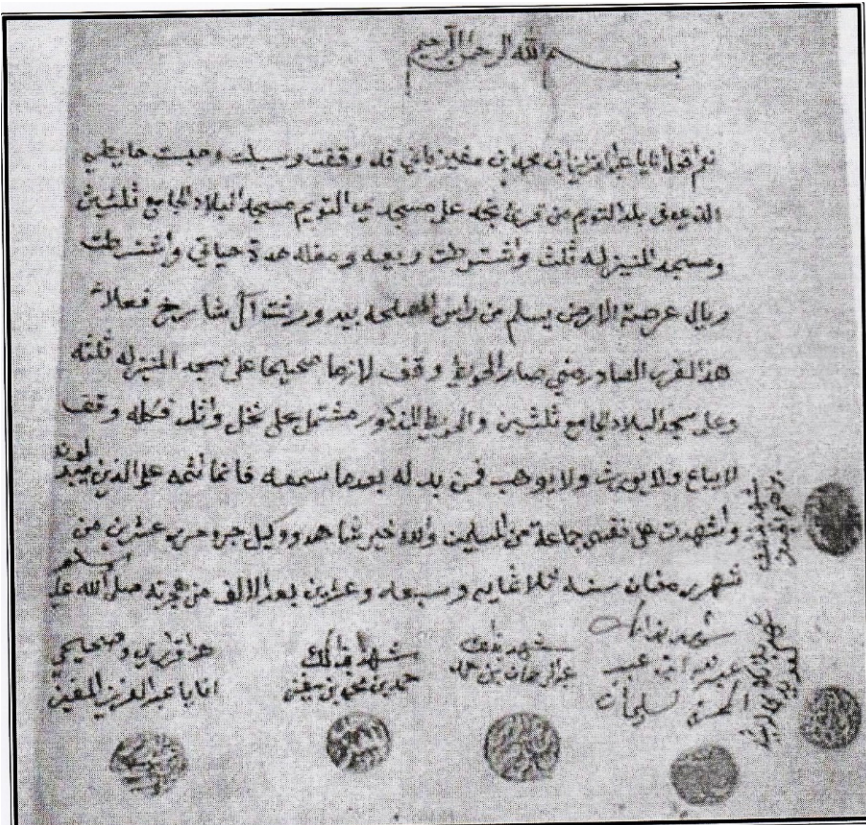 بسم الله الرحمن الرحيم
نعم اقول انا يا عبدالعزيز ابن محمد ابن مغيز باني قد وقفت وسبلت وحبست حايطي
الذي في بلد التويم من قرى نجد على مسجدي التويم مسجد البلاد الجامع ثلثين
ومسجد المنيزله ثلث واشترطت ريعه ومغله مدة حياتي واشترطت
وريال عرصة الارض يسلم من راس المصلحه بيد ورثت آل شارخ فعلا
هذا القرار الصادر مني صار الحويط وقف لازما صحيحا على مسجد المنيزله ثلثه
وعلى مسجد البلاد الجامع ثلثين والحويط المذكور مشتمل على نخل واثل فكله وقف
لا يباع ولا يورث ولا يوهب فمن بدله بعدما سمعه فانما اثمه على الذين يبدلونه
واشهدت على نفسي جماعة من المسلمين والله خير شاهد ووكيل جرى عشرين من
شهر رمضان سنه ثلاثمايه وسبعه وعشرين بعد الالف من هجرته صلى الله عليه وسلم
هذا قراري وصحيحي
انا يا عبدالعزيز المغيز
شهد بذالك
حمد بن محمد بن مغيز
شهد بذلك
عبدالرحمان بن حمد
شهد بذالك
عبدالله ابن عبد
المحسن
شهد بذلك
شهد بذلك